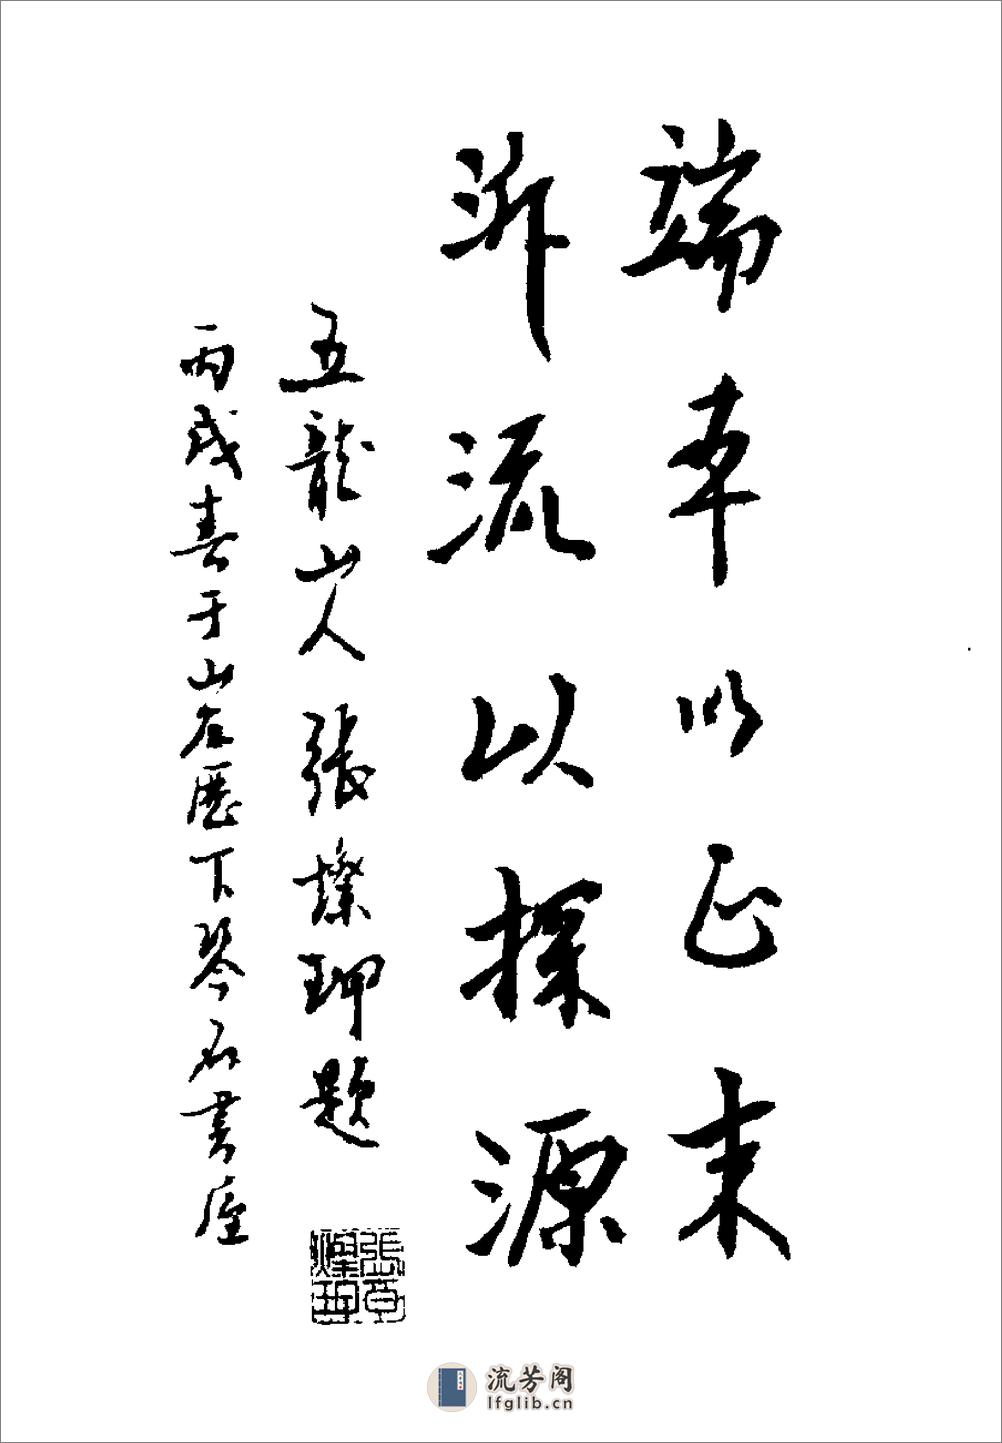 端本以正末
泝流以探源
五龍山人張燦玾題
丙戌春于山左歷下琴石書屋
流芳阁
lfglib.cn